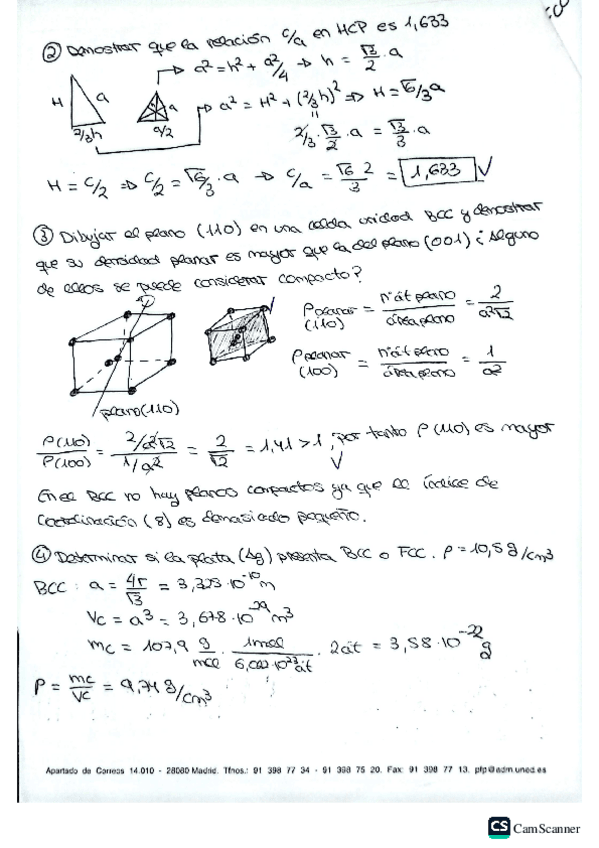 ② Demostrar que la relación c/a en HCP es 1,633
→ a² = h² + a²/4 → h = √3/2 · a
H a a
2/3h a/2 → a² = H² + (2/3h)² ⇒ H = √6/3 a
2/3 · √3/2 · a = √3/3 · a
H = c/2 ⇒ c/2 = √6/3 · a → c/a = √6 2/3 = 1,633 √
③ Dibujar el plano (110) en una celda unidad BCC y demostrar
que su densidad planar es mayor que la del plano (001) ¿Alguno
de ellos se puede considerar compacto?
ρ planar (110) = nºát plano / área plano = 2 / a²√2
ρ planar (100) = nºát plano / área plano = 1 / a²
plano (110)
ρ(110)/ρ(100) = 2/a²√2 / 1/a² = 2/√2 = 1,41 > 1, por tanto ρ(110) es mayor
√
En el BCC no hay planos compactos ya que el índice de
coordinación (8) es demasiado pequeño.
④ Determinar si la plata (Ag) presenta BCC o FCC. ρ = 10,5 g/cm3
BCC: a = 4r/√3 = 3,325·10⁻¹⁰ m
Vc = a³ = 3,678·10⁻²⁹ m³
mc = 107,9 g/mol · 1mol/6,022·10²³ át · 2át = 3,58·10⁻²² g
ρ = mc/Vc = 9,74 g/cm3
Apartado de Correos 14.010 - 28080 Madrid. Tfnos.: 91 398 77 34 - 91 398 75 20. Fax: 91 398 77 13. pfp@adm.uned.es
CS CamScanner